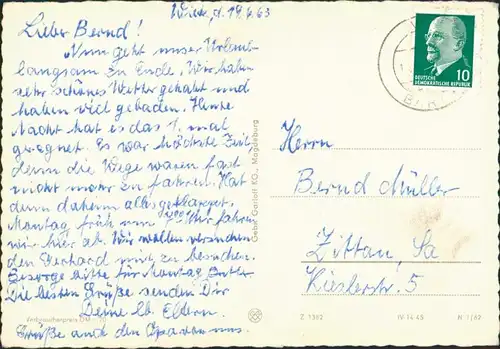 Wiek, d. 19.6.63
Lieber Bernd!
Nun geht unser Urlaub
langsam zu Ende. Wir haben
sehr schönes Wetter gehabt und
haben viel gebaden. Heute
Nacht hat es das 1. mal
geregnet. Es war höchste Zeit,
denn die Wege waren fast
nicht mehr zu fahren. Hat
denn daheim alles geklappt.
Montag früh um Uhr fahren
wir hier ab. Wir wollen versuchen
den Gerhard mit zu besuchen.
Besorge bitte für Montag Butter.
Die besten Grüße senden Dir
Deine lb. Eltern.
Grüße auch den von uns.
DEUTSCHE
DEMOKRATISCHE REPUBLIK
10
Herrn
Bernd Müller
Zittau, Sa
Kieslerstr. 5
Gebr. Garloff KG., Magdeburg
Verbraucherpreis DM
Z 1382
IV-14-45
N 1/62